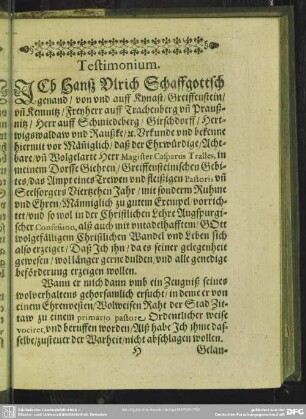 Testimonium.
ICh Hanß Vlrich Schaffgottsch
genand / von vnd auff Kynast / Greiffenstein /
vñ Kemnitz / Freyherr auff Trachenberg vñ Drauß-
nitz / Herr auff Schmiedeberg / Girschdorff / Hert-
wigswaldaw vnd Rauske / ꝛc. Vrkunde vnd bekenne
hiermit vor Mäniglich / daß der Ehrwürdige / Acht-
bare / vñ Wolgelarte Herr Magister Casparus Tralles, in
meinem Dorffe Giehren / Greiffensteinischen Gebi-
tes / das Ampt eines Trewen vnd fleißigen Pastoris vñ
Seelsorgers Viertzehen Jahr / mit sonderm Ruhme
vnd Ehren / Männiglich zu gutem Exempel / vorrich-
tet / vnd so wol in der Christlichen Lehre Augspurgi-
scher Confession, alß auch mit vntadelhafftem / GOtt
wolgefälligem Christlichen Wandel vnd Leben sich
also erzeiget / Daß Ich ihn / da es seiner gelegenheit
gewesen / wol länger gerne dulden / vnd alle genedige
beförderung erzeigen wollen.
Wann er mich dann vmb ein Zeugniß seines
wolverhaltens gehorsamlich ersucht / in deme er von
einem Ehrenvesten / Wolweisen Raht der Stad Zit-
taw zu einem primario pastore Ordentlicher weise
vociret, vnd beruffen worden / Alß habe Ich ihme das-
selbe / zusteuer der Warheit / nicht abschlagen wollen.
H
Gelan-